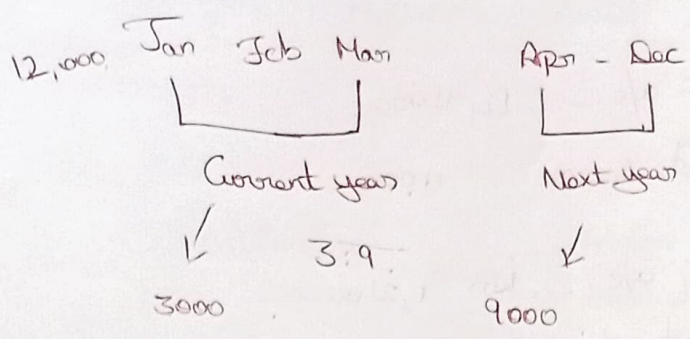 12,000 Jan Feb Mar Apr - Dec
Current year Next year
3:9
3000 9000